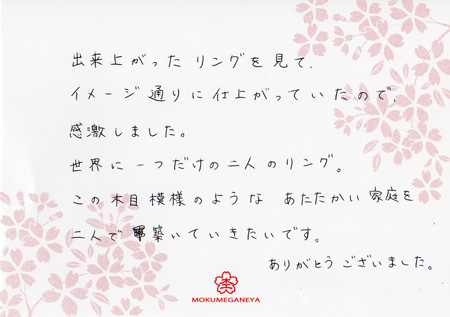 出来上がった リングを見て、
イメージ通りに仕上がっていたので、
感激しました。
世界に一つだけの二人のリング。
この木目模様のような あたたかい家庭を
二人で築いていきたいです。
ありがとうございました。
MOKUMEGANEYA